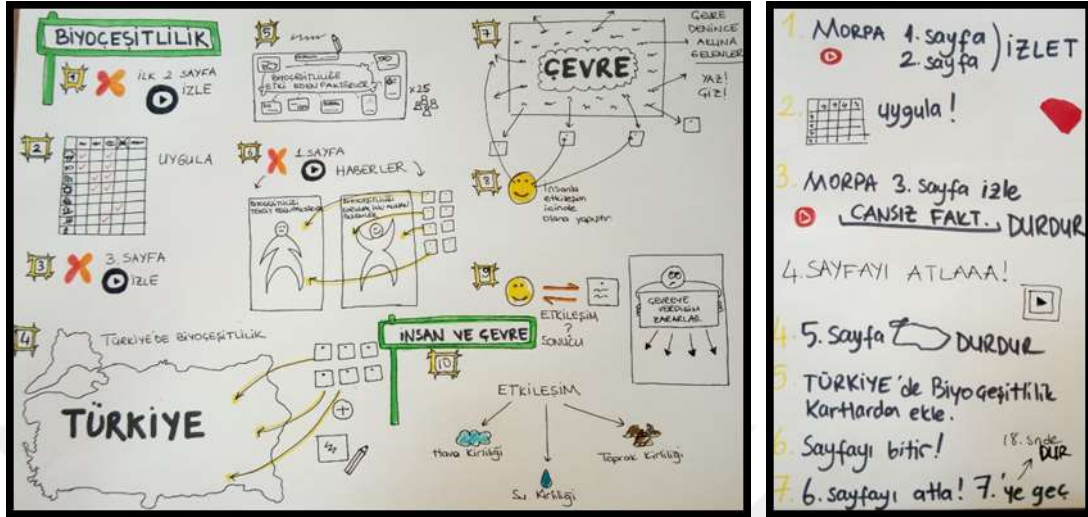 BİYOÇEŞİTLİLİK
1
İLK 2 SAYFA
İZLE
2
UYGULA
3
3. SAYFA
İZLE
4
TÜRKİYE'DE BİYOÇEŞİTLİLİK
TÜRKİYE
5
BİYOÇEŞİTLİLİĞE
ETKİ EDEN FAKTÖRLER
x25
6
1. SAYFA
HABERLER
BİYOÇEŞİTLİLİĞİ
7
ÇEVRE
ÇEVRE
DENİNCE
AKLINA
GELENLER
YAZ!
ÇİZ!
8
İnsanla
etkileşim
içinde
olana yapıştır.
9
ETKİLEŞİM
?
SONUCU
ÇEVREYE
VERDİĞİM
ZARARLAR
İNSAN VE ÇEVRE
10
ETKİLEŞİM
Hava Kirliliği
Su Kirliliği
Toprak Kirliliği
1. MORPA 1. sayfa
2. sayfa ) İZLET
2. uygula!
3. MORPA 3. sayfa izle
CANSIZ FAKT. DURDUR
4. SAYFAYI ATLAAA!
4. 5. Sayfa DURDUR
5. TÜRKİYE'de Biyoçeşitlilik
Kartlardan ekle.
6. Sayfayı bitir!
18. snde
DUR
7. 6. sayfayı atla! 7.'ye geç